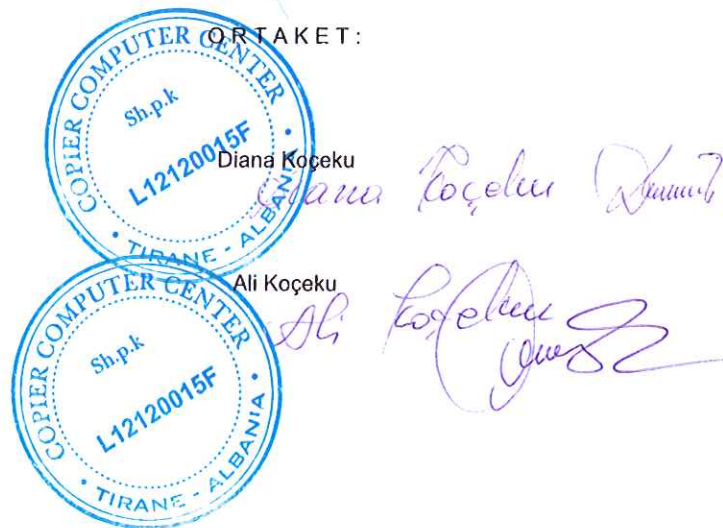 ORTAKET:
COPIER COMPUTER CENTER
Sh.p.k
L12120015F
• TIRANE - ALBANIA •
Diana Koçeku
Diana Koçeku
COPIER COMPUTER CENTER
Sh.p.k
L12120015F
• TIRANE - ALBANIA •
Ali Koçeku
Ali Koçeku